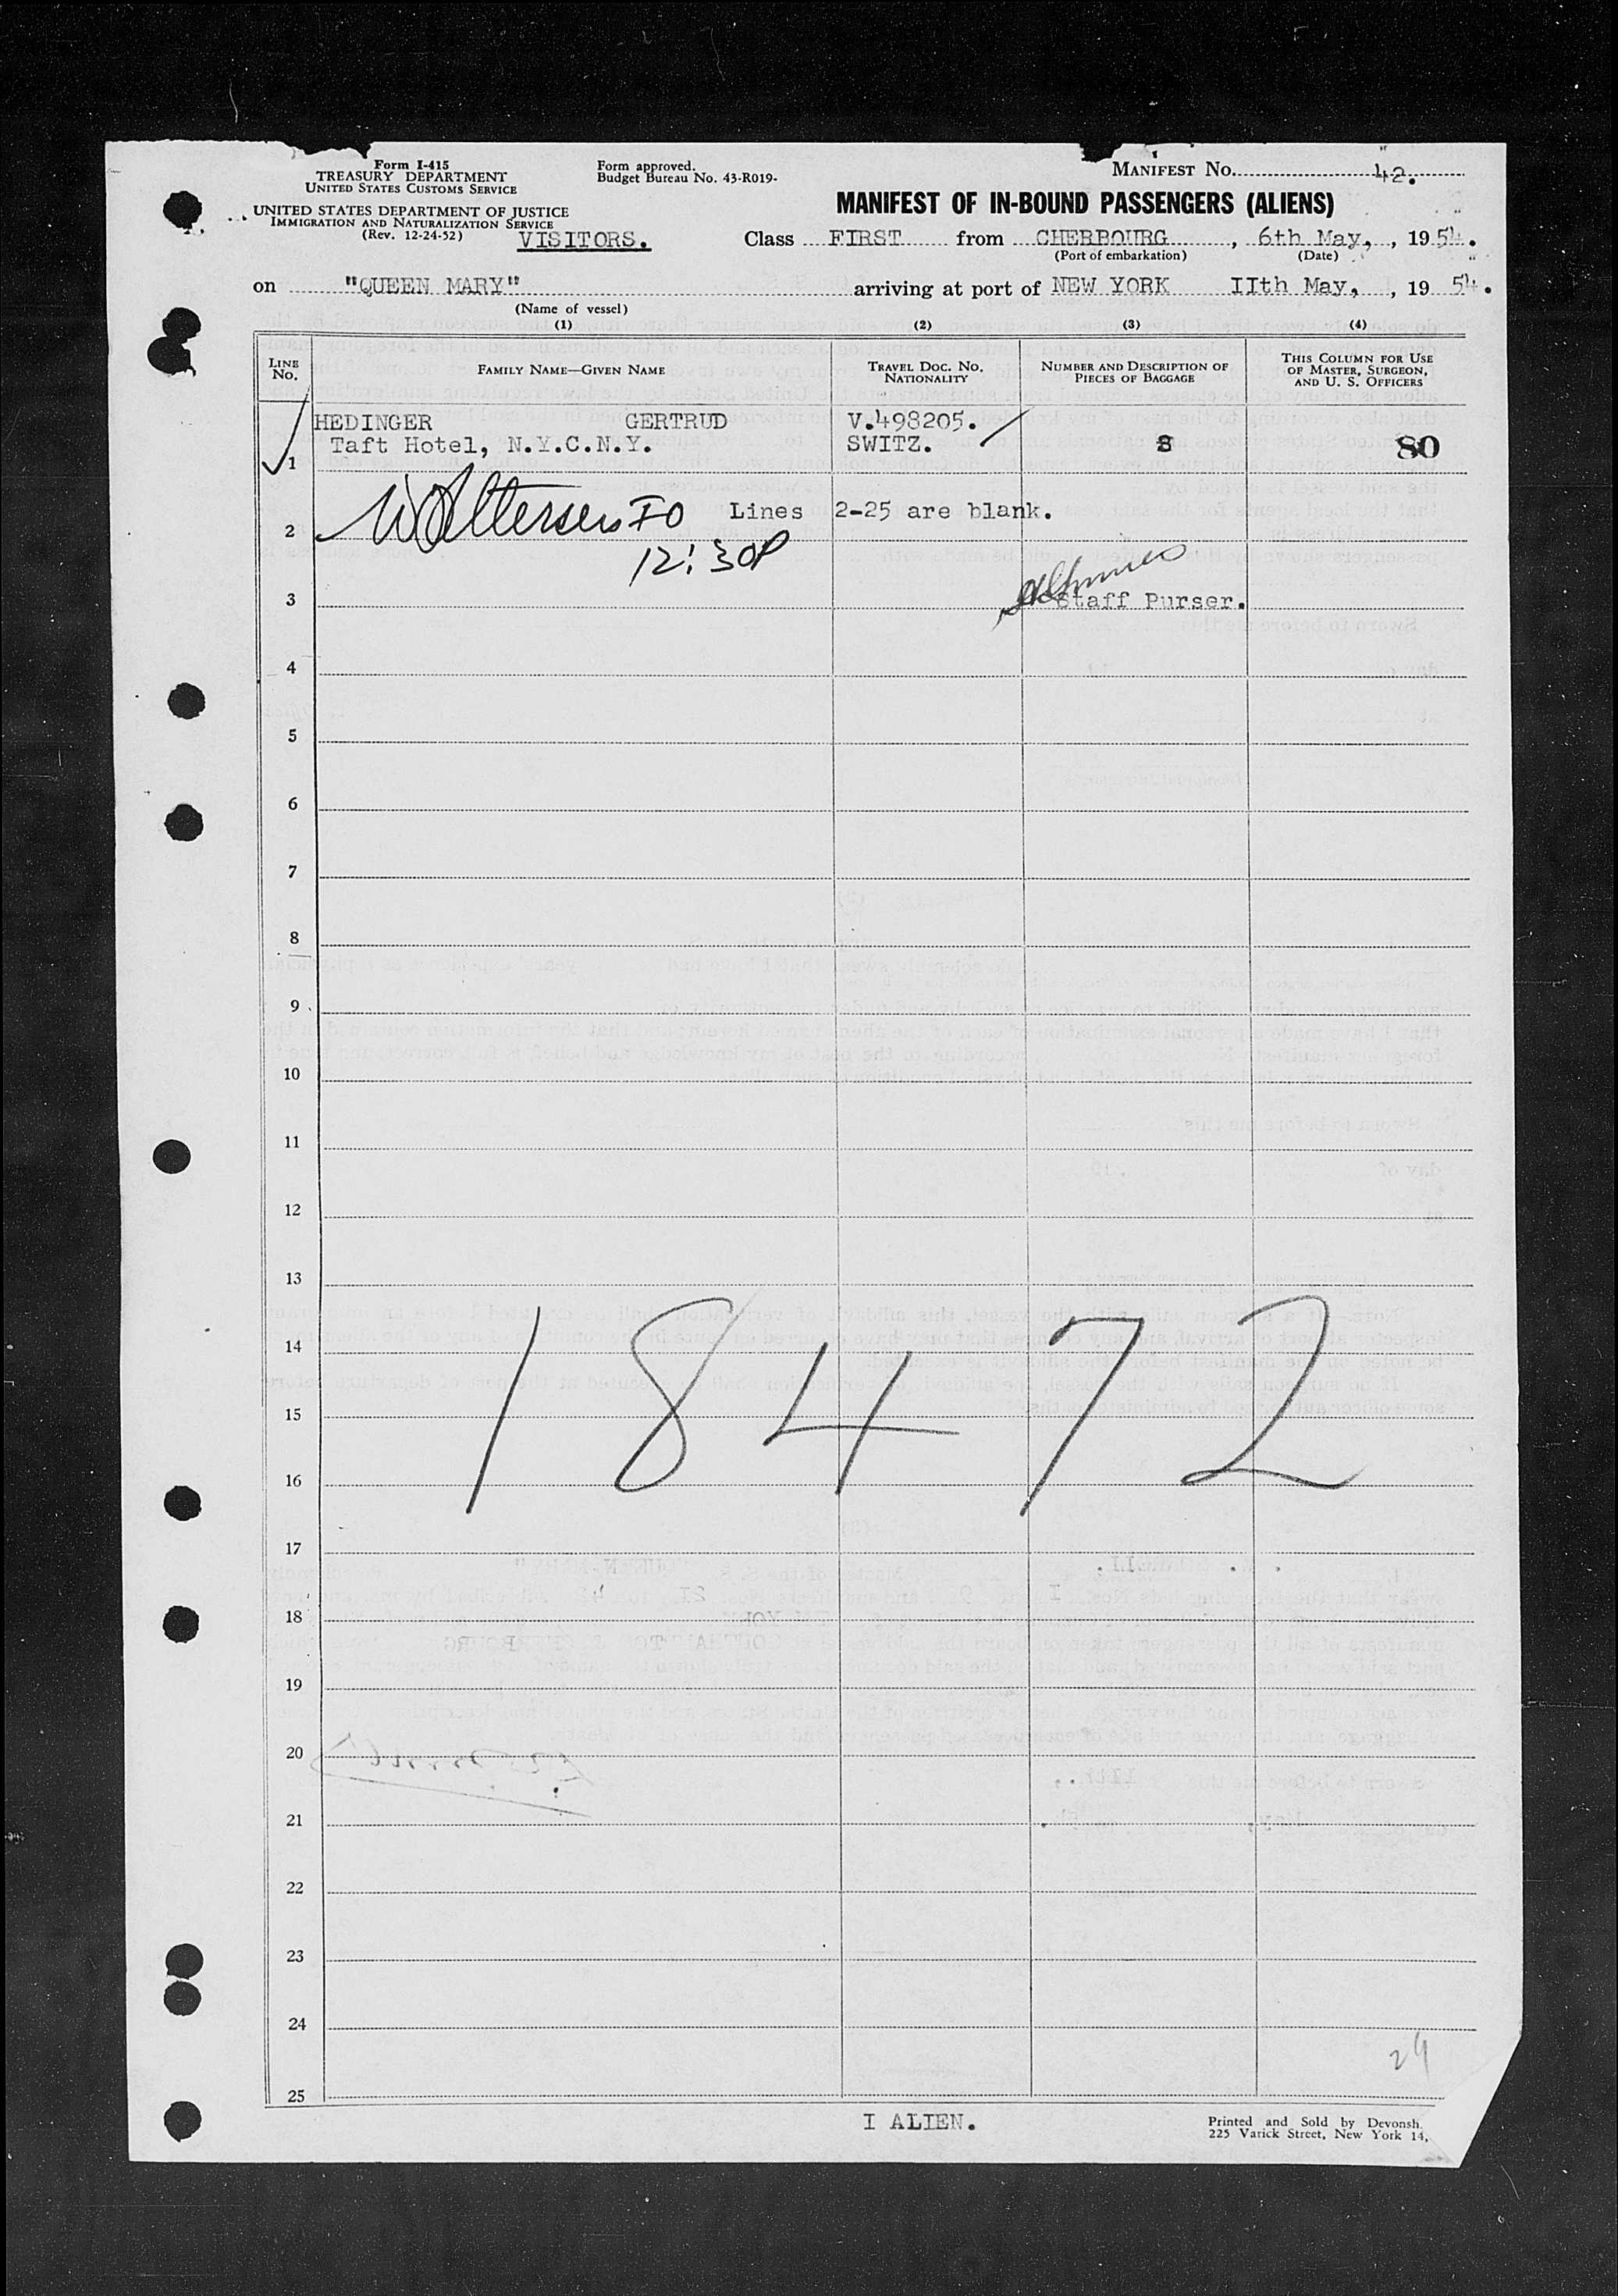 Form I-415
TREASURY DEPARTMENT
UNITED STATES CUSTOMS SERVICE
UNITED STATES DEPARTMENT OF JUSTICE
IMMIGRATION AND NATURALIZATION SERVICE
(Rev. 12-24-52) VISITORS.
Form approved.
Budget Bureau No. 43-R019-
MANIFEST NO. 42.
MANIFEST OF IN-BOUND PASSENGERS (ALIENS)
Class FIRST from CHERBOURG, 6th May, , 1954.
(Port of embarkation) (Date)
on "QUEEN MARY" arriving at port of NEW YORK IIth May, , 19 54.
(Name of vessel)
(1) (2) (3) (4)
LINE NO. FAMILY NAME—GIVEN NAME TRAVEL DOC. NO. NATIONALITY NUMBER AND DESCRIPTION OF PIECES OF BAGGAGE THIS COLUMN FOR USE OF MASTER, SURGEON, AND U. S. OFFICERS
HEDINGER GERTRUD V.498205.
1 Taft Hotel, N.Y.C.N.Y. SWITZ. 8 80
2 IO Lines 2-25 are blank.
12:30P
3 Staff Purser.
4
5
6
7
8
9
10
11
12
13
14
15
16
18472
17
18
19
20
21
22
23
24
24
25
I ALIEN.
Printed and Sold by Devonsh
225 Varick Street, New York 14,